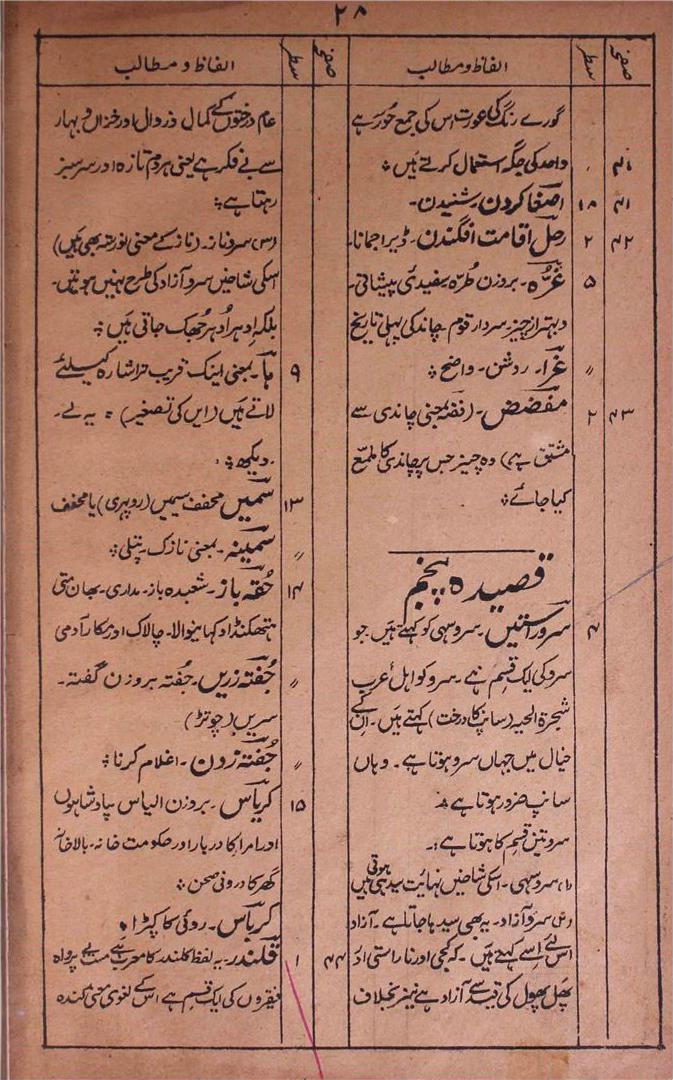 ۲۸
صفحہ سطر الفاظ و مطالب
گورے رنگ کی عورت اس کی جمع حور ہے
۴۱ واحد کی جگہ استعمال کرتے ہیں ؞
۴۱ ۱۸ اصغا کردن۔ شنیدن۔
۴۲ ۲ رحل اقامت افگندن۔ ڈیرا جمانا۔
۵ غرّہ۔ بروزن طرّہ سفیدئ پیشانی۔
و بہتر از چیز۔ سردار قوم۔ چاند کی پہلی تاریخ
〃 غرا۔ روشن۔ واضح ؞
۴۳ ۲ مفضض۔ (فضہ بمعنی چاندی سے
مشتق ہے) وہ چیز جس پر چاندی کا ملمع
کیا جائے ؞
قصیدہ پنجم
۴ سرو راستیں۔ سرو سہی کو کہتے ہیں۔ جو
سرو کی ایک قسم ہے۔ سرو کو اہل عرب
شجرة الحیہ (سانپ کا درخت) کہتے ہیں۔ ان کے
خیال میں جہاں سرو ہوتا ہے۔ وہاں
سانپ ضرور ہوتا ہے ؞
سرو تین قسم کا ہوتا ہے :۔
(۱) سرو سہی۔ اسکی شاخیں نہائیت سیدہی ہوتی ہیں
(۲) سرو آزاد۔ یہ بھی سیدہا جاتا ہے۔ آزاد
اس لئے اسے کہتے ہیں۔ کہ کجی اور ناراستی اور
پھل پھول کی قید سے آزاد ہے نیز بخلاف
صفحہ سطر الفاظ و مطالب
عام درختوں کے کمال و زوال اور خزاں و بہار
سے بے فکر ہے یعنی ہر دم تازہ اور سرسبز
رہتا ہے ؞
(۳) سرو ناز۔ (ناز کے معنی نورستہ بھی ہیں)
اسکی شاخیں سرو آزاد کی طرح نہیں ہوتیں۔
بلکہ ادہر اُدہر جُھک جاتی ہیں ؞
۹ ہا۔ بمعنی اینک قریب تر اشارہ کیلئے
لاتے ہیں (ایں کی تصغیر) = یہ لے۔
۔دیکھ ؞
۱۳ سمیں مخفف سیمیں (روپہری) یا مخفف
〃 سمینہ۔ بمعنی نازک۔ پتلی ؞
۱۴ حُقہ باز۔ شعبدہ باز۔ مداری۔ بھان متی
ہتھکنڈا دکہانیوالا۔ چالاک اور مکار آدمی
〃 جُفتہ زریں۔ جُفتہ بروزن گفتہ۔
سریں (چوتڑ)
〃 جُفتہ زدن۔ اغلام کرنا ؞
۱۵ کریاس۔ بروزن الیاس۔ بادشاہوں
اور امرا کا دربار اور حکومت خانہ۔ بالاخانہ
گھر کا درونی صحن ؞
کرباس۔ روئی کا کپڑا ؞
۴۴ ۱ قلندر۔ یہ لفظ کلندر کا معرب ہے مست بے پرواہ
فقیروں کی ایک قسم ہے اس کے لغوی معنی کندہ